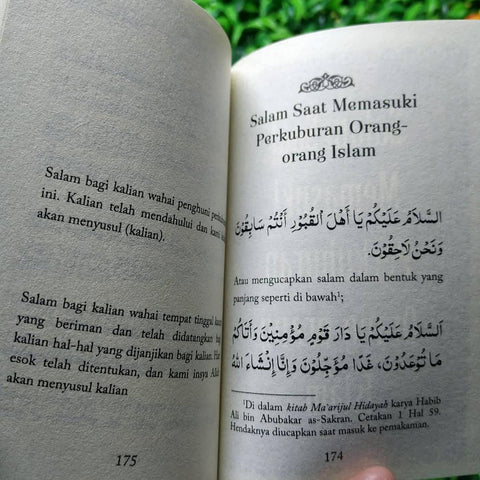 Salam Saat Memasuki
Perkuburan Orang-
orang Islam
اَلسَّلَامُ عَلَيْكُمْ يَا أَهْلَ الْقُبُورِ أَنْتُمْ سَابِقُوْنَ
وَنَحْنُ لَاحِقُوْنَ.
Atau mengucapkan salam dalam bentuk yang
panjang seperti di bawah¹;
اَلسَّلَامُ عَلَيْكُمْ يَا دَارَ قَوْمٍ مُؤْمِنِيْنَ وَأَتَاكُمْ
مَا تُوْعَدُوْنَ، غَدًا مُؤَجَّلُوْنَ وَإِنَّا إِنْشَاءَ اللهُ
¹Di dalam kitab Ma'arijul Hidayah karya Habib
Ali bin Abubakar as-Sakran. Cetakan 1 Hal 59.
Hendaknya diucapkan saat masuk ke pemakaman.
174
Salam bagi kalian wahai penghuni
ini. Kalian telah mendahului dan kami
akan menyusul (kalian).
Salam bagi kalian wahai tempat tinggal
yang beriman dan telah didatangkan
kalian hal-hal yang dijanjikan bagi kalian.
esok telah ditentukan, dan kami insya
akan menyusul kalian
175